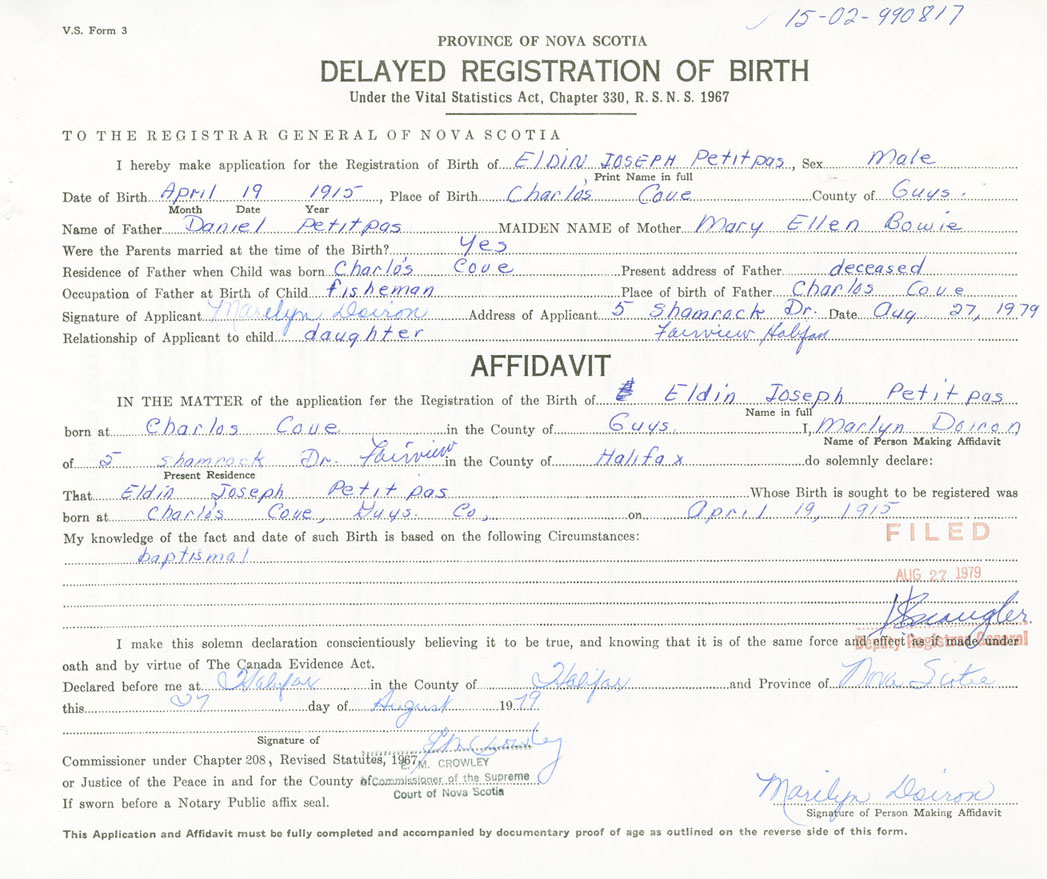 15-02-990817
V.S. Form 3
PROVINCE OF NOVA SCOTIA
DELAYED REGISTRATION OF BIRTH
Under the Vital Statistics Act, Chapter 330, R.S.N.S. 1967
TO THE REGISTRAR GENERAL OF NOVA SCOTIA
I hereby make application for the Registration of Birth of ELDIN JOSEPH Petitpas, Sex Male
Print Name in full
Date of Birth April 19 1915, Place of Birth Charlo's Cove County of Guys.
Month Date Year
Name of Father Daniel Petitpas MAIDEN NAME of Mother Mary Ellen Bowie
Were the Parents married at the time of the Birth? Yes
Residence of Father when Child was born Charlo's Cove Present address of Father deceased
Occupation of Father at Birth of Child fisheman Place of birth of Father Charlos Cove
Signature of Applicant Marilyn Doiron Address of Applicant 5 Shamrock Dr. Date Aug 27, 1979
Relationship of Applicant to child daughter Fairview Halifax
AFFIDAVIT
IN THE MATTER of the application for the Registration of the Birth of Eldin Joseph Petitpas
Name in full
born at Charlos Cove in the County of Guys. I, Marlyn Doiron
Name of Person Making Affidavit
of 5 Shamrock Dr. Fairview in the County of Halifax do solemnly declare:
Present Residence
That Eldin Joseph Petitpas Whose Birth is sought to be registered was
born at Charlo's Cove, Guys. Co, on April 19, 1915
FILED
My knowledge of the fact and date of such Birth is based on the following Circumstances:
baptismal
AUG 27 1979
Deputy Registrar General
I make this solemn declaration conscientiously believing it to be true, and knowing that it is of the same force and effect as if made under
oath and by virtue of The Canada Evidence Act.
Declared before me at Halifax in the County of Halifax and Province of Nova Scotia
this 27 day of August 1979
Signature of EM Crowley
Commissioner under Chapter 208, Revised Statutes, 1967
E. M. CROWLEY
or Justice of the Peace in and for the County of
Commissioner of the Supreme
Court of Nova Scotia
If sworn before a Notary Public affix seal.
Marilyn Doiron
Signature of Person Making Affidavit
This Application and Affidavit must be fully completed and accompanied by documentary proof of age as outlined on the reverse side of this form.